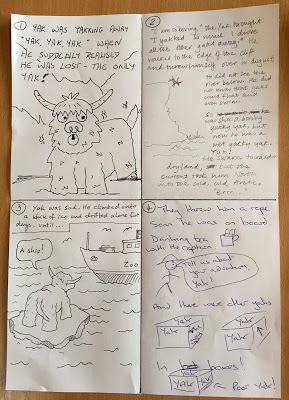 1
YAK WAS YAKKING AWAY
"YAK, YAK, YAK" WHEN
HE SUDDENLY REALISED
HE WAS LOST - THE ONLY
YAK!
2
"I am so boring," the Yak thought.
"I yakked so much I drove
all the other yaks away." He
walked to the edge of the cliff
and threw himself over in disgust
He did not see the
river below. He did
not know that yaks
could float and
even swim.
So
was still a boring
yakky yak, but
now he was a
wet yakky yak.
Yuk!
He swam towards
dry land, but the
current took him North
into the cold, cold Arctic,
"Brrr..."
3
Yak was sad. He climbed onto
a block of ice and drifted alone for
days, until...
A ship!
ZOO
4
They threw him a rope
Soon he was on board
Drinking tea
with the Captain
Tell us about
your adventures
Yak!
And there were other yaks
Yak
Yak
In boxes!
YAK
Poor Yak!